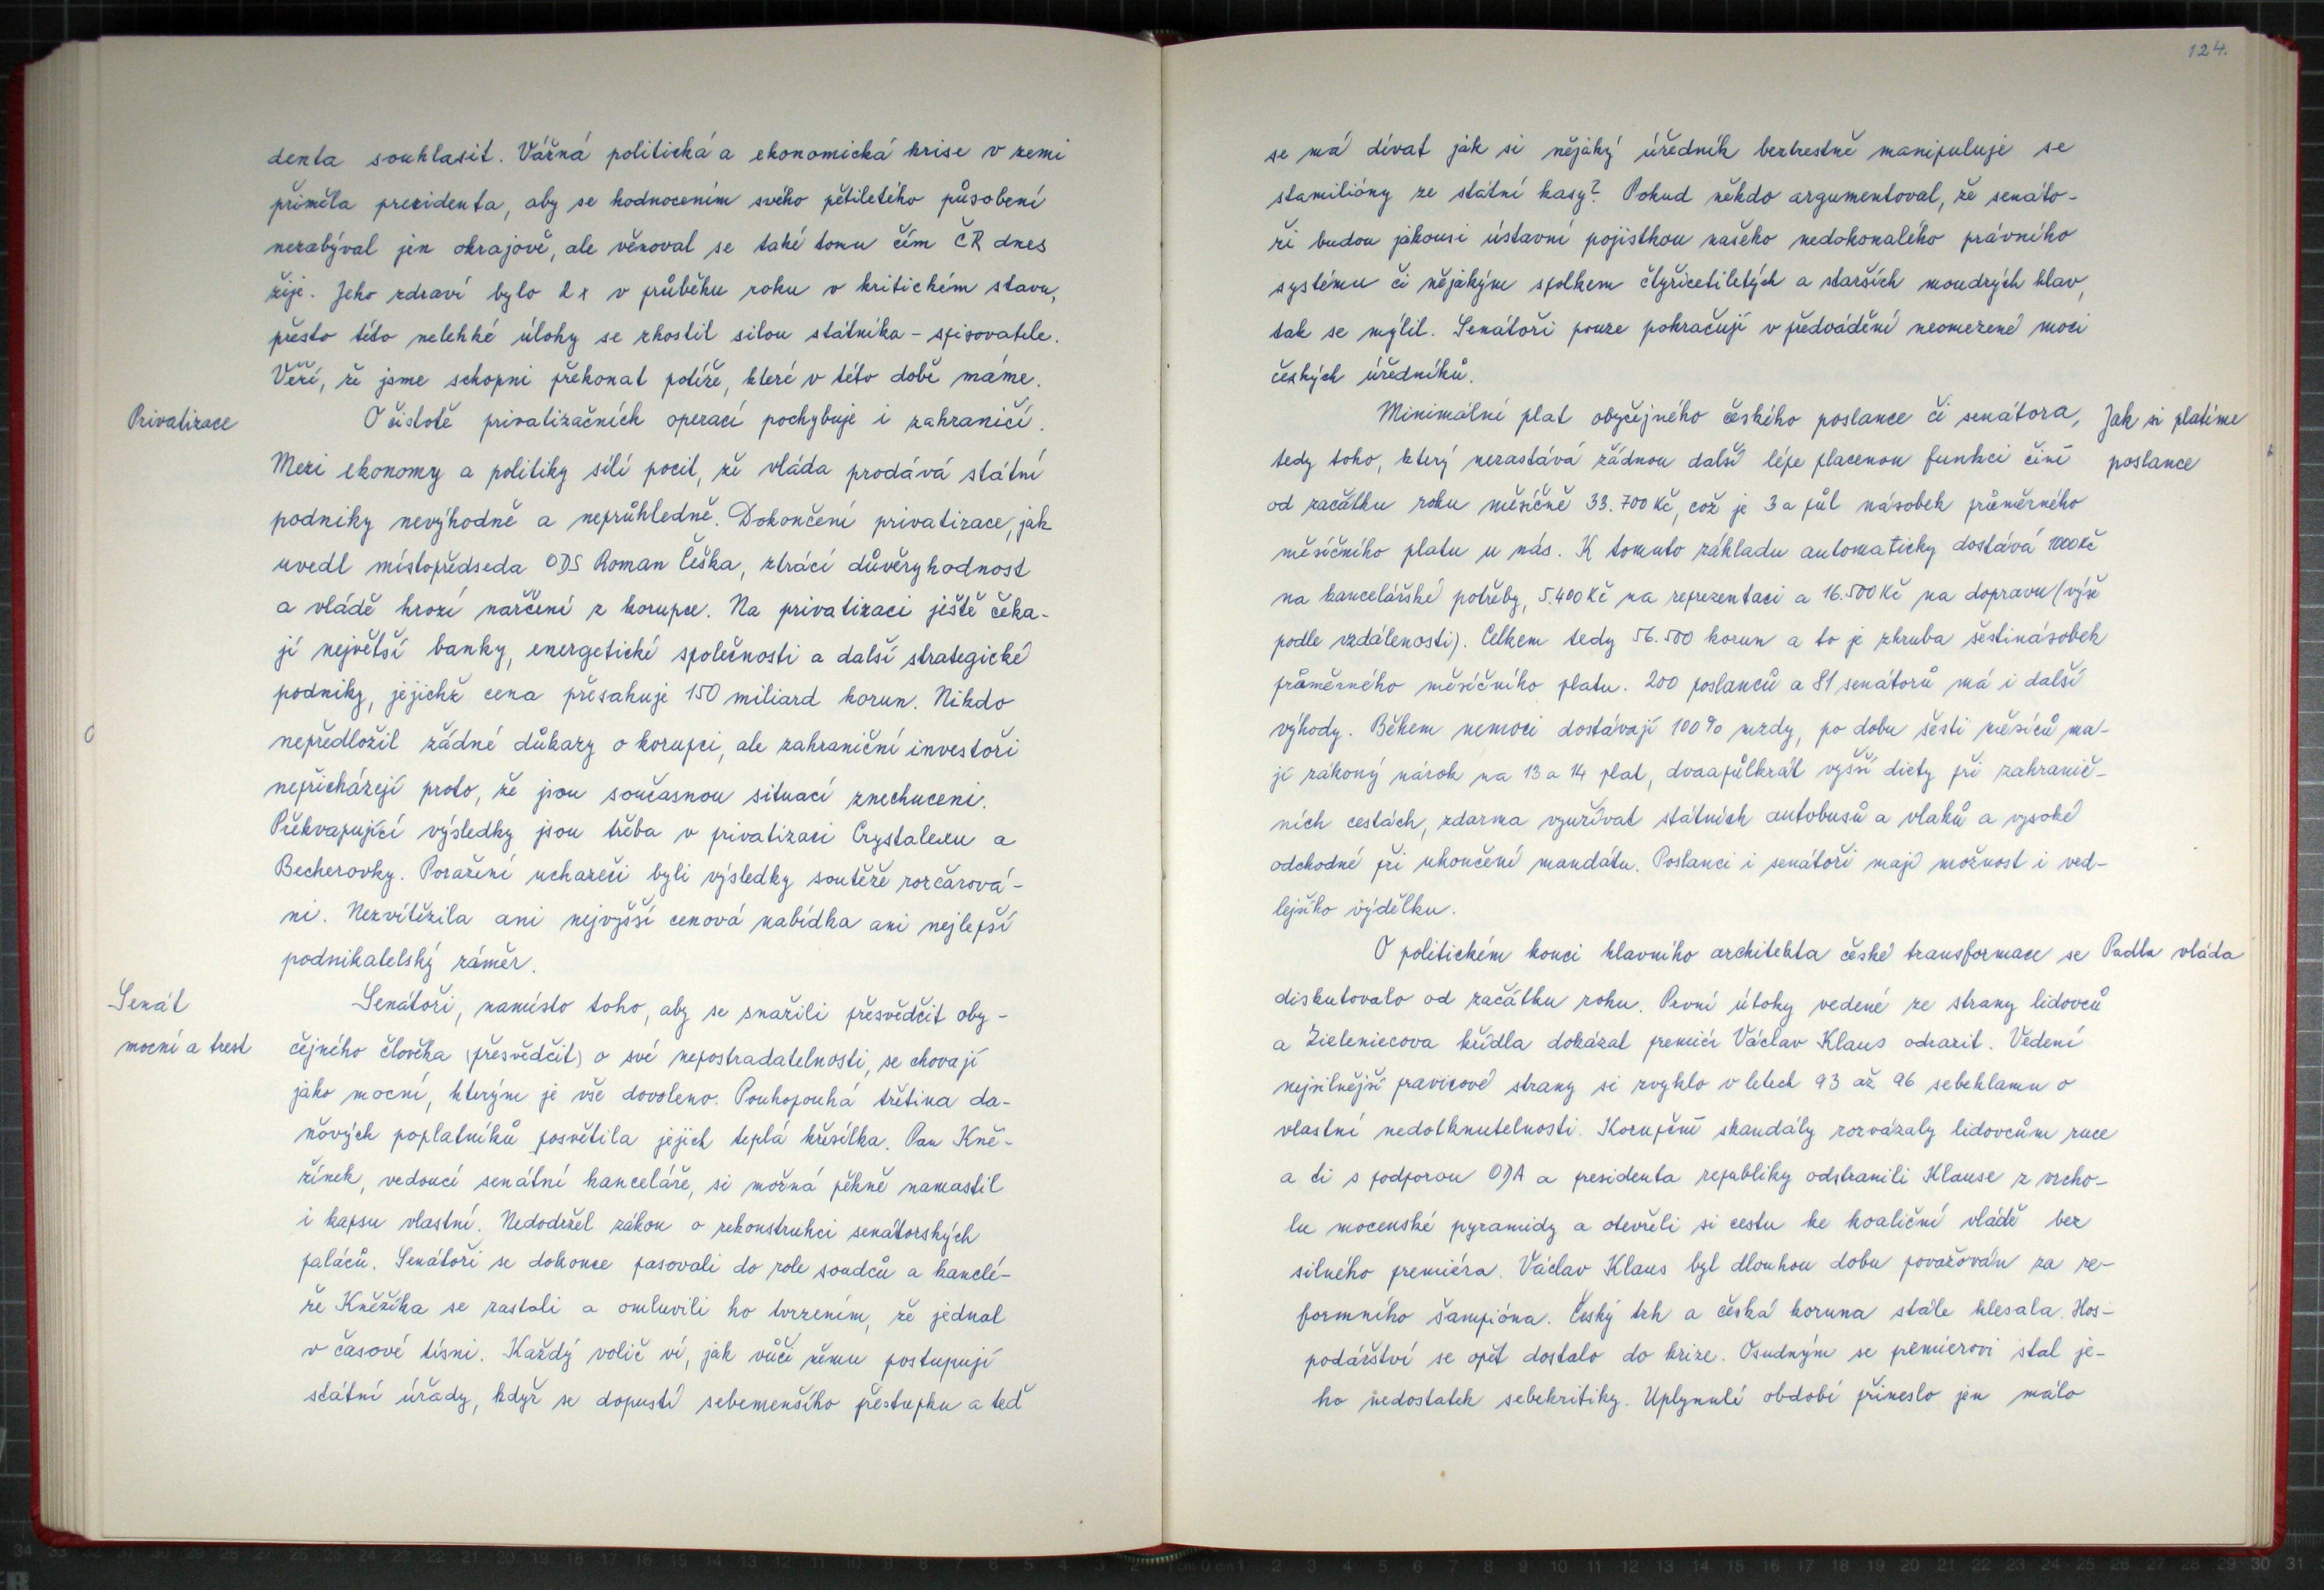 denta souhlasit. Vážná politická a ekonomická krise v zemi
přiměla prezidenta, aby se hodnocením svého pětiletého působení
nezabýval jen okrajově, ale věnoval se také tomu čím ČR dnes
žije. Jeho zdraví bylo 2x v průběhu roku v kritickém stavu,
přesto této nelehké úlohy se zhostil silou státníka - spisovatele.
Věří, že jsme schopni překonat potíže, které v této době máme.
Privatizace
O čistotě privatizačních operací pochybuje i zahraničí.
Mezi ekonomy a politiky sílí pocit, že vláda prodává státní
podniky nevýhodně a neprůhledně. Dokončení privatizace, jak
uvedl místopředseda ODS Roman Češka, ztrácí důvěryhodnost
a vládě hrozí nařčení z korupce. Na privatizaci ještě čeka-
jí největší banky, energetické společnosti a další strategické
podniky, jejichž cena přesahuje 150 miliard korun. Nikdo
nepředložil žádné důkazy o korupci, ale zahraniční investoři
nepřicházejí proto, že jsou současnou situací znechuceni.
Překvapující výsledky jsou třeba v privatizaci Crystalexu a
Becherovky. Poražení uchazeči byli výsledky soutěže rozčarová-
ni. Nezvítězila ani nejvyšší cenová nabídka ani nejlepší
podnikatelský záměr.
Senát
mocní a trest
Senátoři, namísto toho, aby se snažili přesvědčit oby-
čejného člověka (přesvědčit) o své nepostradatelnosti, se chovají
jako mocní, kterým je vše dovoleno. Pouhopouhá třetina da-
ňových poplatníků posvětila jejich teplá křesílka. Pan Kně-
žínek, vedoucí senátní kanceláře, si možná pěkně namastil
i kapsu vlastní. Nedodržel zákon o rekonstrukci senátorských
paláců. Senátoři se dokonce pasovali do role soudců a kanclé-
ře Kněžíka se zastali a omluvili ho tvrzením, že jednal
v časové tísni. Každý volič ví, jak vůči němu postupují
státní úřady, když se dopustí sebemenšího přestupku a teď
124.
se má dívat jak si nějáký úředník beztrestně manipuluje se
stamilióny ze státní kasy? Pokud někdo argumentoval, že senáto-
ři budou jakousi ústavní pojistkou našeho nedokonalého právního
systému či nějakým spolkem čtyřicetiletých a starších moudrých hlav,
tak se mýlil. Senátoři pouze pokračují v předvádění neomezené moci
českých úředníků.
Minimální plat obyčejného českého poslance či senátora,
Jak si platíme
poslance
tedy toho, který nezastává žádnou další lépe placenou funkci činí
od začátku roku měsíčně 33.700 Kč, což je 3 a půl násobek průměrného
měsíčního platu u nás. K tomuto základu automaticky dostává 1000 Kč
na kancelářské potřeby, 5.400 Kč na reprezentaci a 16.500 Kč na dopravu (výše
podle vzdálenosti). Celkem tedy 56.500 korun a to je zhruba šestinásobek
průměrného měsíčního platu. 200 poslanců a 81 senátorů má i další
výhody. Během nemoci dostávají 100% mzdy, po dobu šesti měsíců ma-
jí zákoný nárok na 13 a 14 plat, dvaapůlkrát vyšší diety při zahranič-
ních cestách, zdarma využívat státních autobusů a vlaků a vysoké
odchodné při ukončení mandátu. Poslanci i senátoři mají možnost i ved-
lejšího výdělku.
O politickém konci hlavního architekta české transformace se
Padla vláda
diskutovalo od začátku roku. První útoky vedené ze strany lidovců
a Zieleniecova křídla dokázal premiér Václav Klaus odrazit. Vedení
nejsilnější pravicové strany si zvyklo v letech 93 až 96 sebeklamu o
vlastní nedotknutelnosti. Korupční skandály rozvázaly lidovcům ruce
a ti s podporou ODA a presidenta republiky odstranili Klause z vrcho-
lu mocenské pyramidy a otevřeli si cestu ke koaliční vládě bez
silného premiéra. Václav Klaus byl dlouhou dobu považován za re-
formního šampióna. Český trh a česká koruna stále klesala. Hos-
podářství se opět dostalo do krize. Osudným se premiérovi stal je-
ho nedostatek sebekritiky. Uplynulé období přineslo jen málo